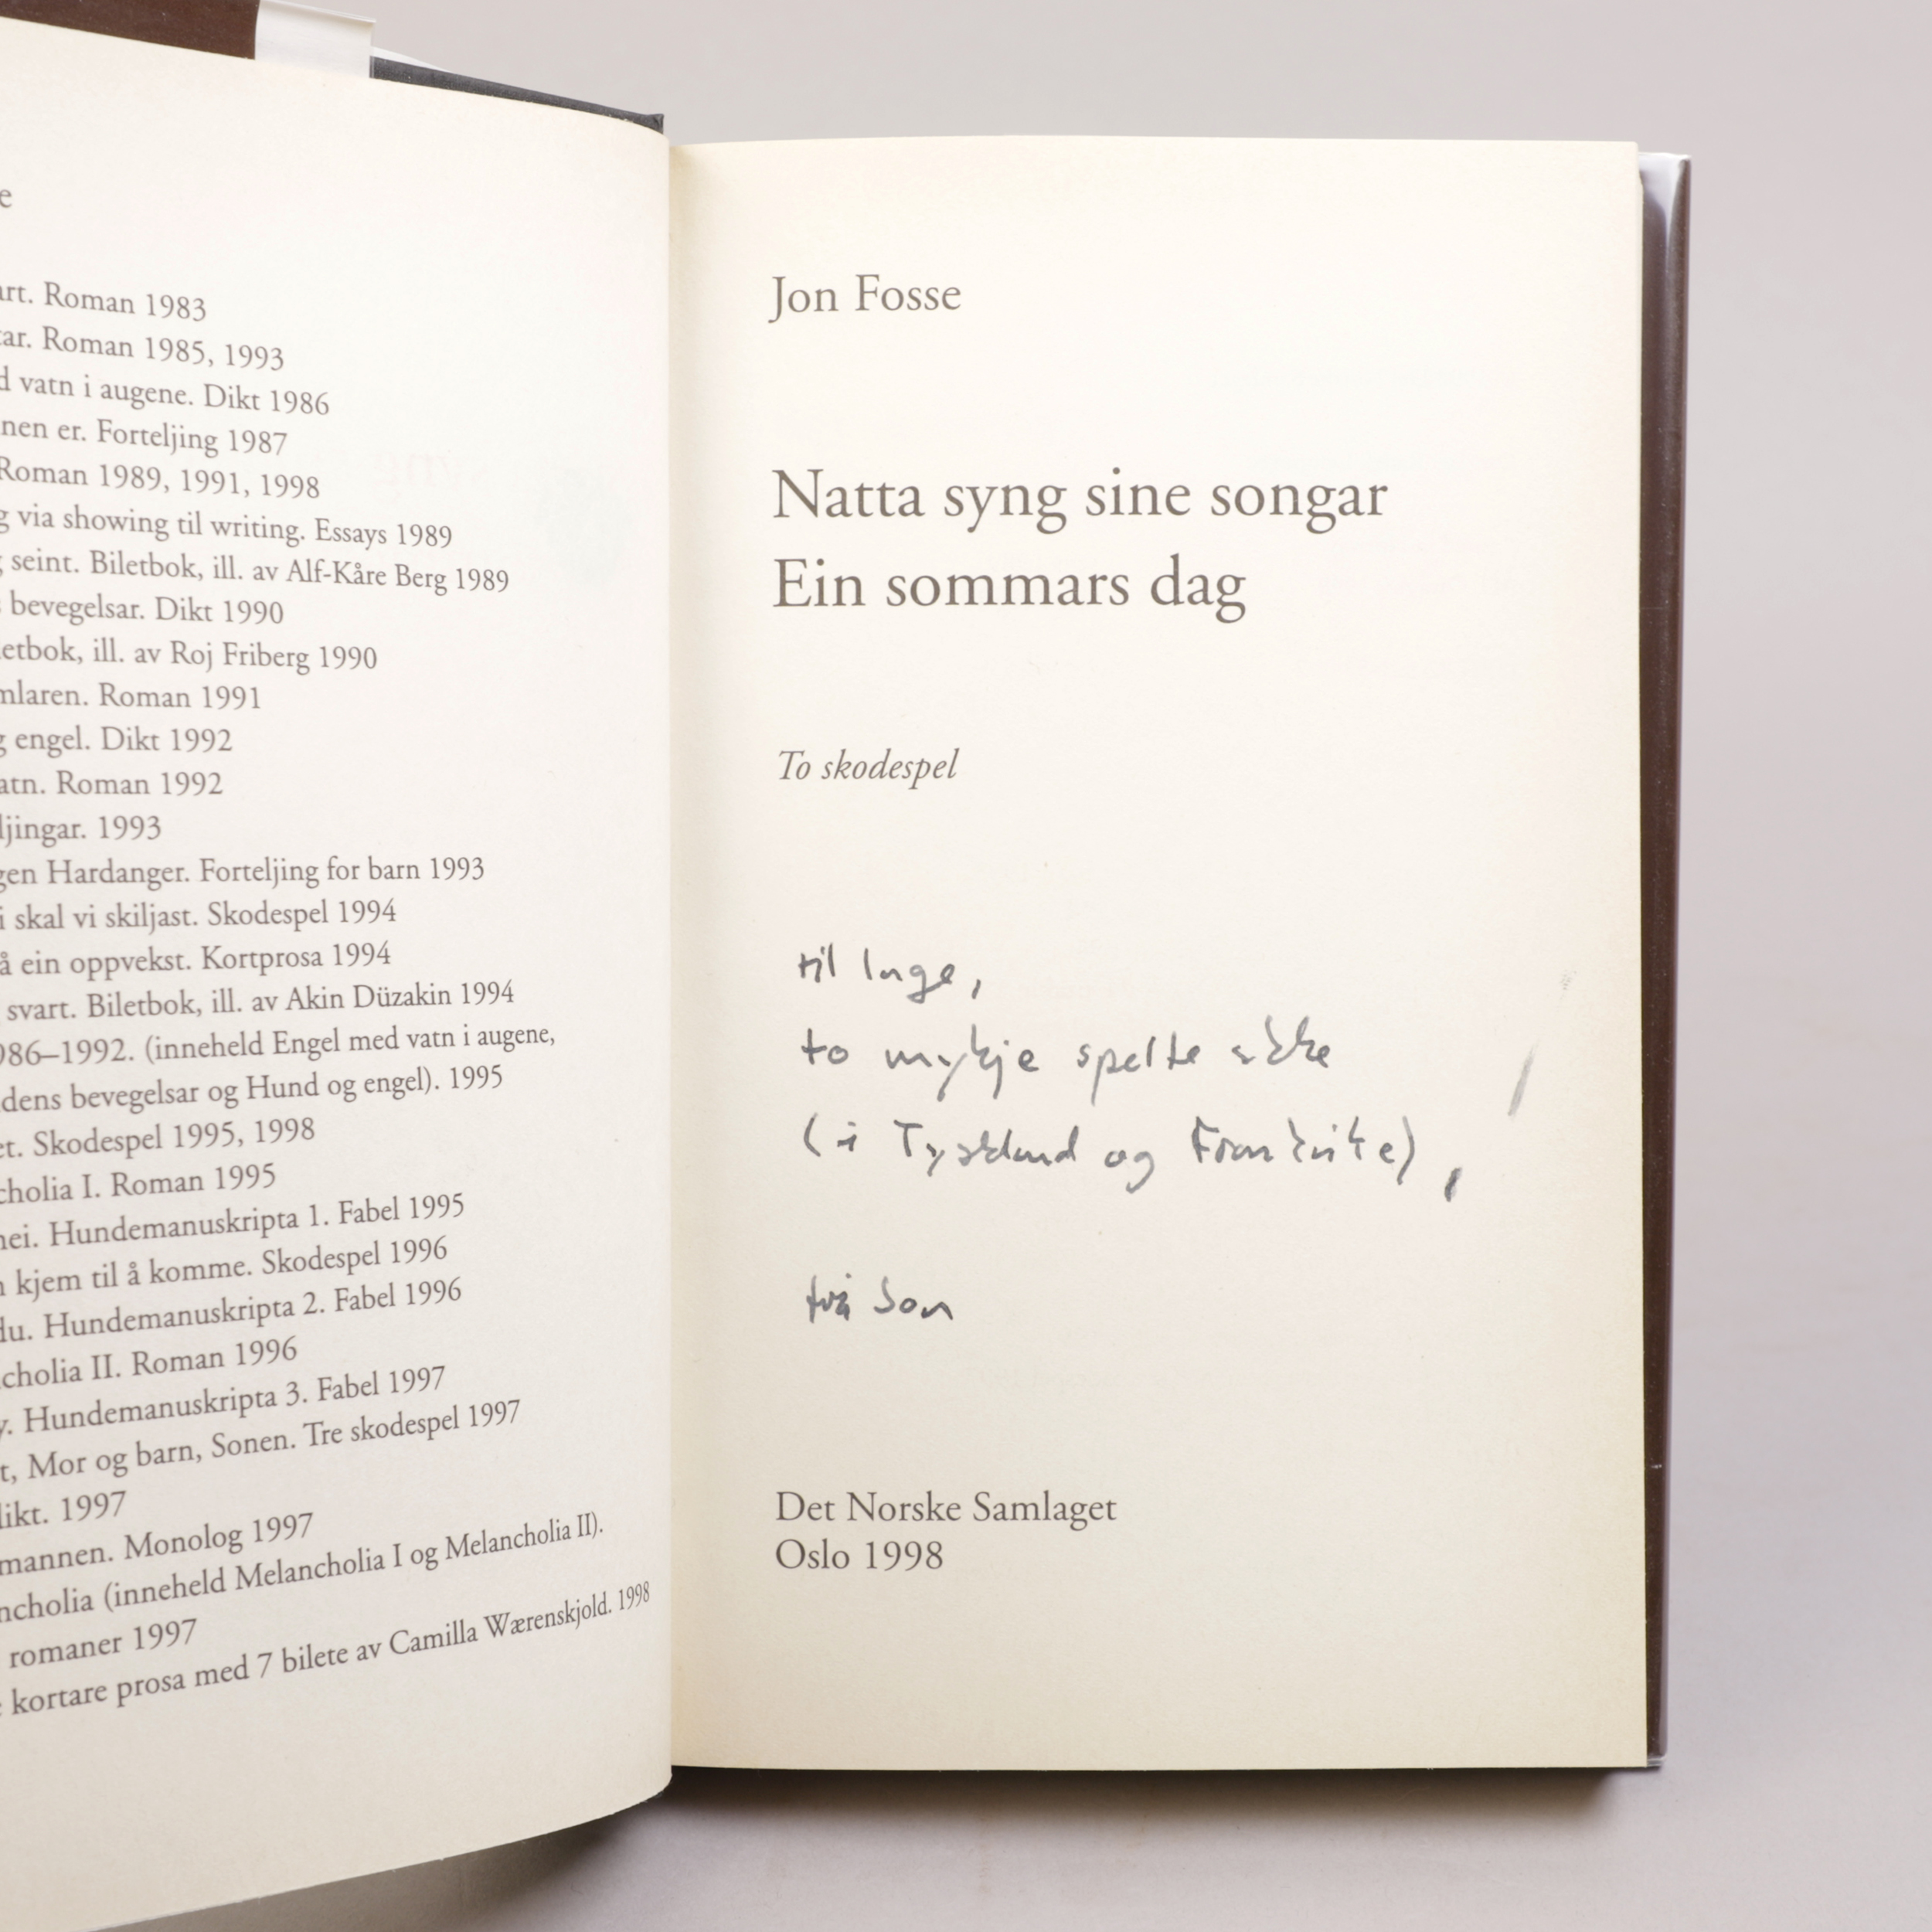 e
art. Roman 1983
tar. Roman 1985, 1993
d vatn i augene. Dikt 1986
nen er. Forteljing 1987
Roman 1989, 1991, 1998
g via showing til writing. Essays 1989
g seint. Biletbok, ill. av Alf-Kåre Berg 1989
s bevegelsar. Dikt 1990
letbok, ill. av Roj Friberg 1990
mlaren. Roman 1991
g engel. Dikt 1992
atn. Roman 1992
ljingar. 1993
gen Hardanger. Forteljing for barn 1993
i skal vi skiljast. Skodespel 1994
å ein oppvekst. Kortprosa 1994
svart. Biletbok, ill. av Akin Düzakin 1994
986–1992. (inneheld Engel med vatn i augene,
dens bevegelsar og Hund og engel). 1995
et. Skodespel 1995, 1998
cholia I. Roman 1995
nei. Hundemanuskripta 1. Fabel 1995
n kjem til å komme. Skodespel 1996
du. Hundemanuskripta 2. Fabel 1996
cholia II. Roman 1996
y. Hundemanuskripta 3. Fabel 1997
t, Mor og barn, Sonen. Tre skodespel 1997
dikt. 1997
mannen. Monolog 1997
ncholia (inneheld Melancholia I og Melancholia II).
romaner 1997
kortare prosa med 7 bilete av Camilla Wærenskjold. 1998
Jon Fosse
Natta syng sine songar
Ein sommars dag
To skodespel
til Inge,
to mykje spelte
(i Tyskland og Frankrike),
frå Jon
Det Norske Samlaget
Oslo 1998